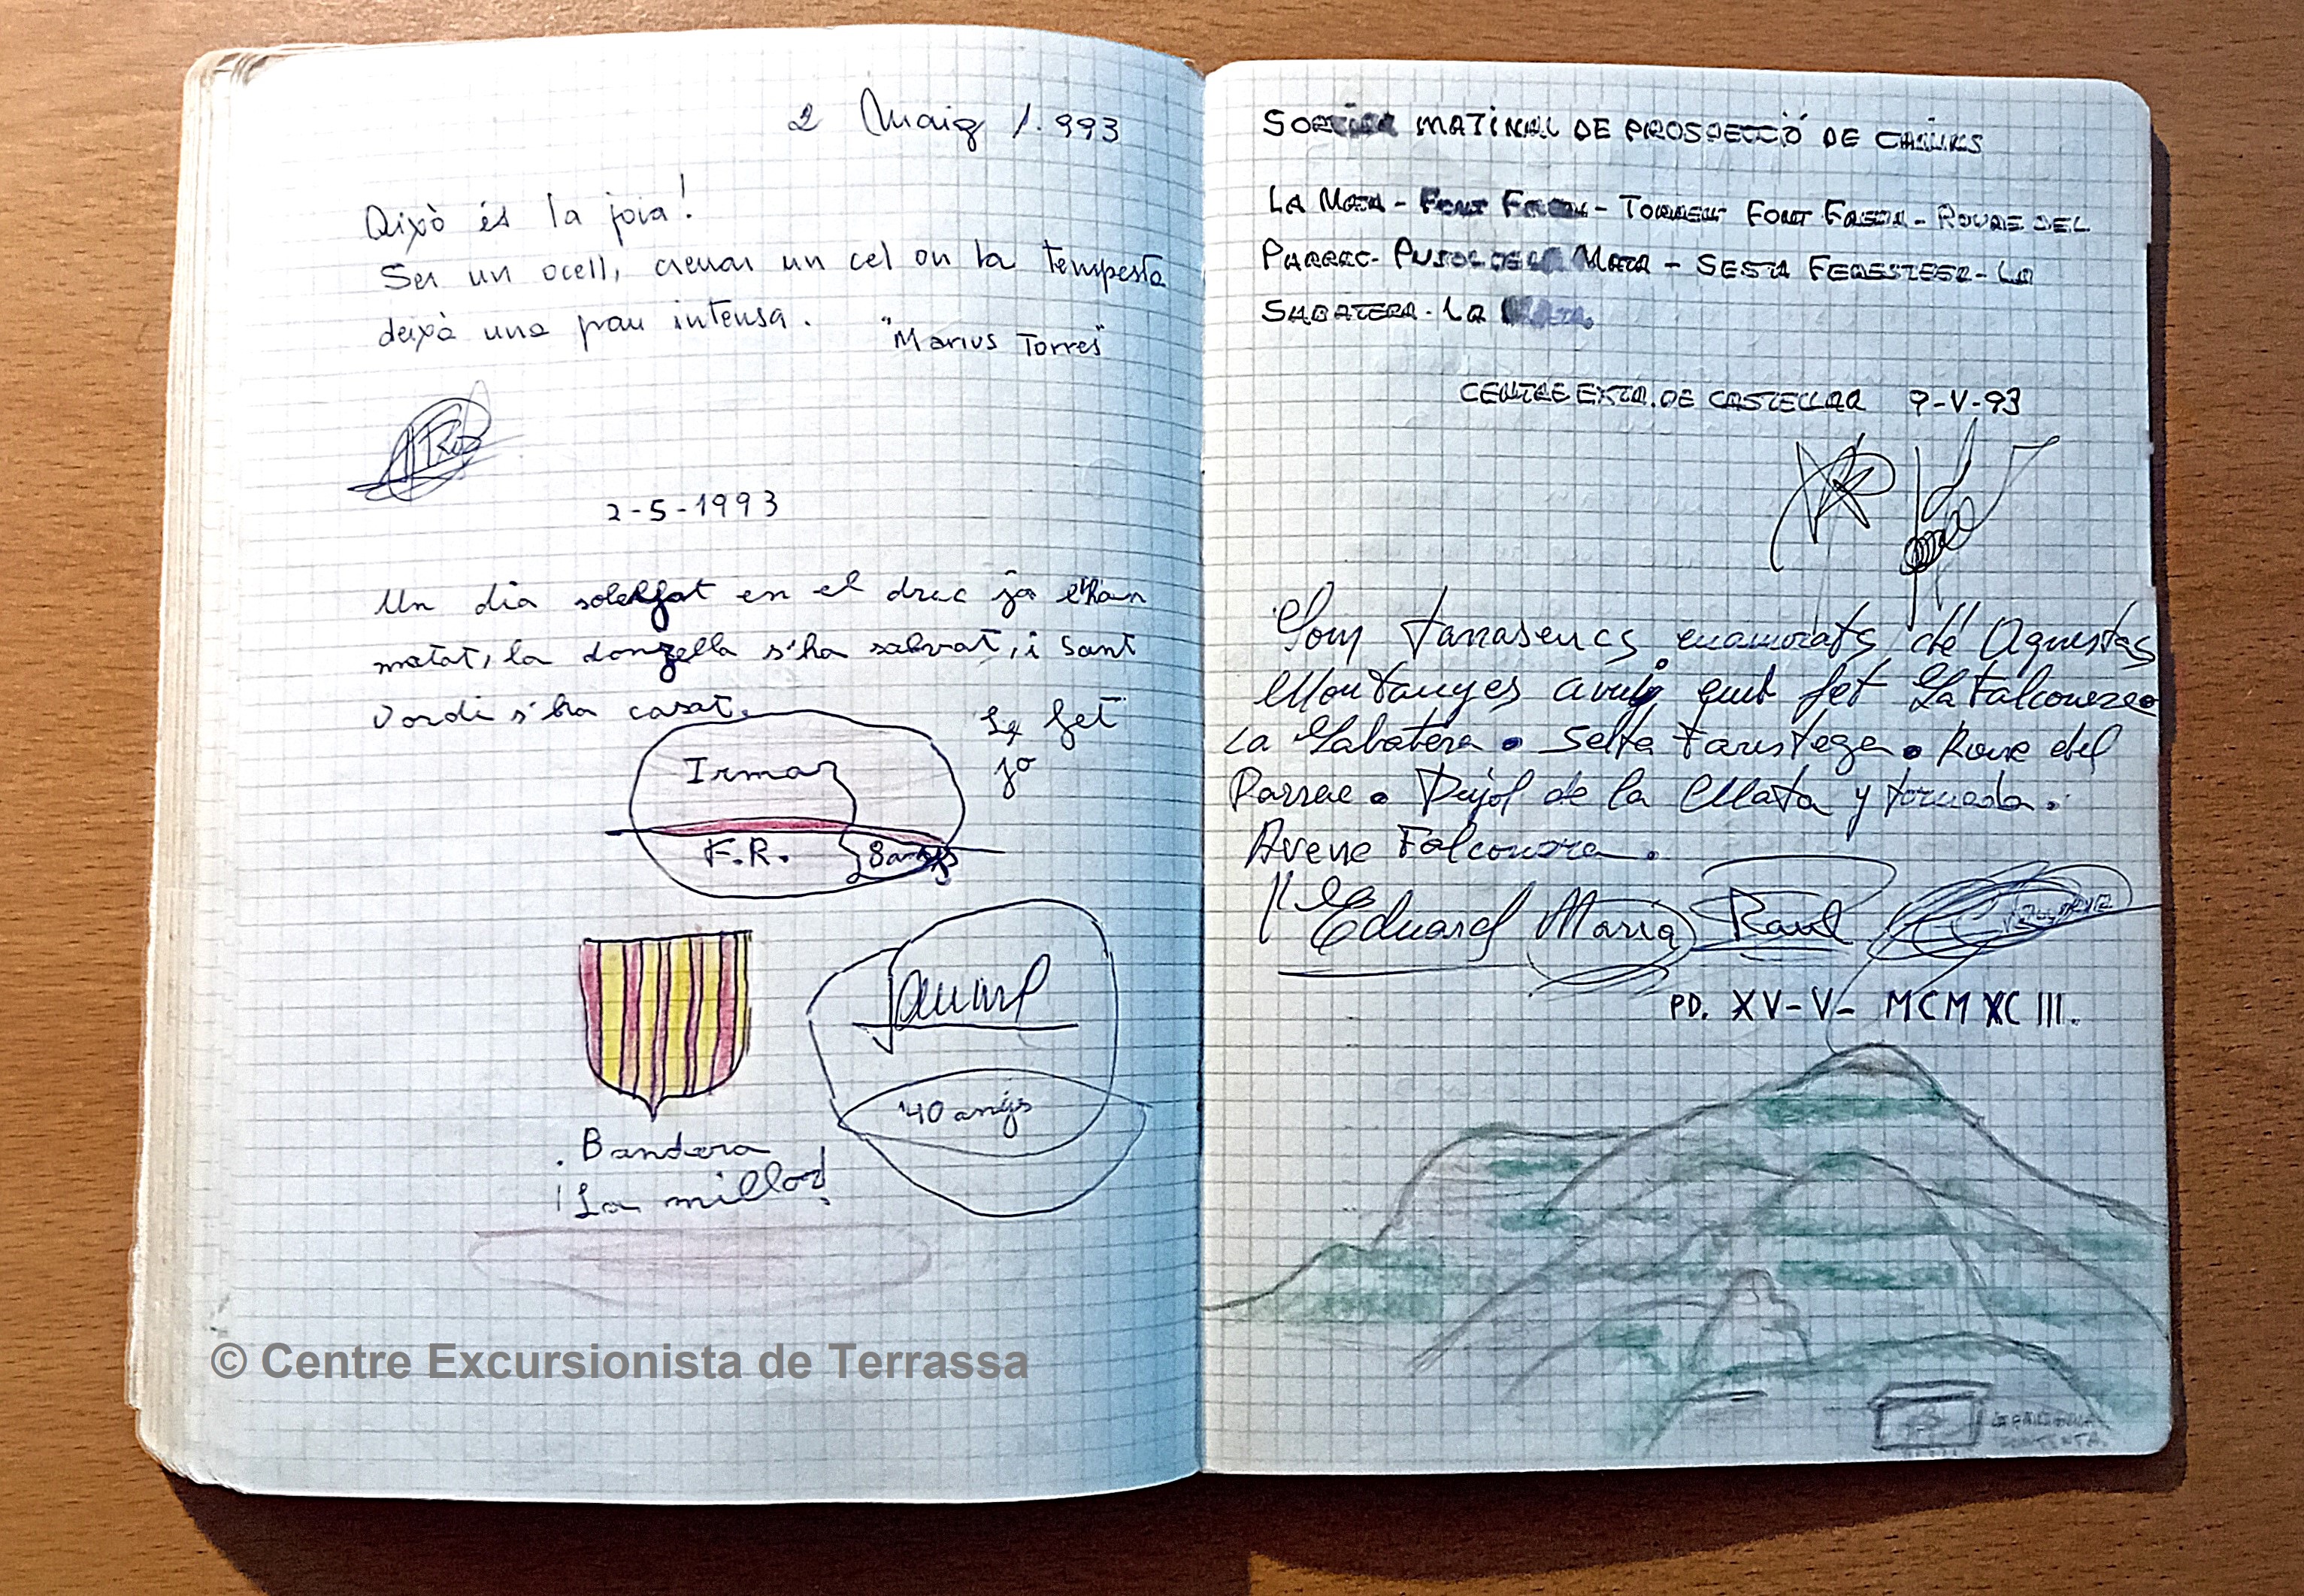 2 Maig 1.993
Això és la joia!
Ser un ocell, creuar un cel on la tempesta
deixà una pau intensa.
"Marius Torres"
2-5-1993
Un dia solellat en el drac ja l'han
matat, la donzella s'ha salvat, i Sant
Jordi s'ha casat.
fet
jo
Irma
F.R.
8 anys
Jaume
40 anys
Bandera
¡La millor!
© Centre Excursionista de Terrassa
SORTIDA MATINAL DE PROSPECCIÓ DE CAMINS
LA MATA - FONT FREDA - TORRENT FONT FREDA - ROURE DEL
PARRAC - PUJOL DE LA MATA - SESTA FERESTEGA - LA
SABATERA - LA MATA.
CENTRE EXTA. DE CASTELLAR 9-V-93
Som tarrasencs enamorats de Aquestas
Montanyes avui em fet La Falconera
La Sabatera • Selta Farestega • Roure del
Parrac • Pujol de la Mata y tornada.
Avenc Falconera.
Eduard Maria Raul
PD. XV-V- MCMXCIII.